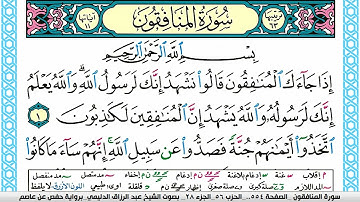 سُورَةُ الْمُنَافِقُونَ
ترتيبها ٦٣
آياتها ١١
بِسْمِ اللَّهِ الرَّحْمَٰنِ الرَّحِيمِ
إِذَا جَاءَكَ الْمُنَافِقُونَ قَالُوا نَشْهَدُ إِنَّكَ لَرَسُولُ اللَّهِ وَاللَّهُ يَعْلَمُ
إِنَّكَ لَرَسُولُهُ وَاللَّهُ يَشْهَدُ إِنَّ الْمُنَافِقِينَ لَكَاذِبُونَ ١
اتَّخَذُوا أَيْمَانَهُمْ جُنَّةً فَصَدُّوا عَنْ سَبِيلِ اللَّهِ إِنَّهُمْ سَاءَ مَا كَانُوا
سورة المنافقون الصفحة ٥٥٤ الحزب ٥٦ الجزء ٢٨ بصوت الشيخ عبد الرزاق الدليمي برواية حفص عن عاصم